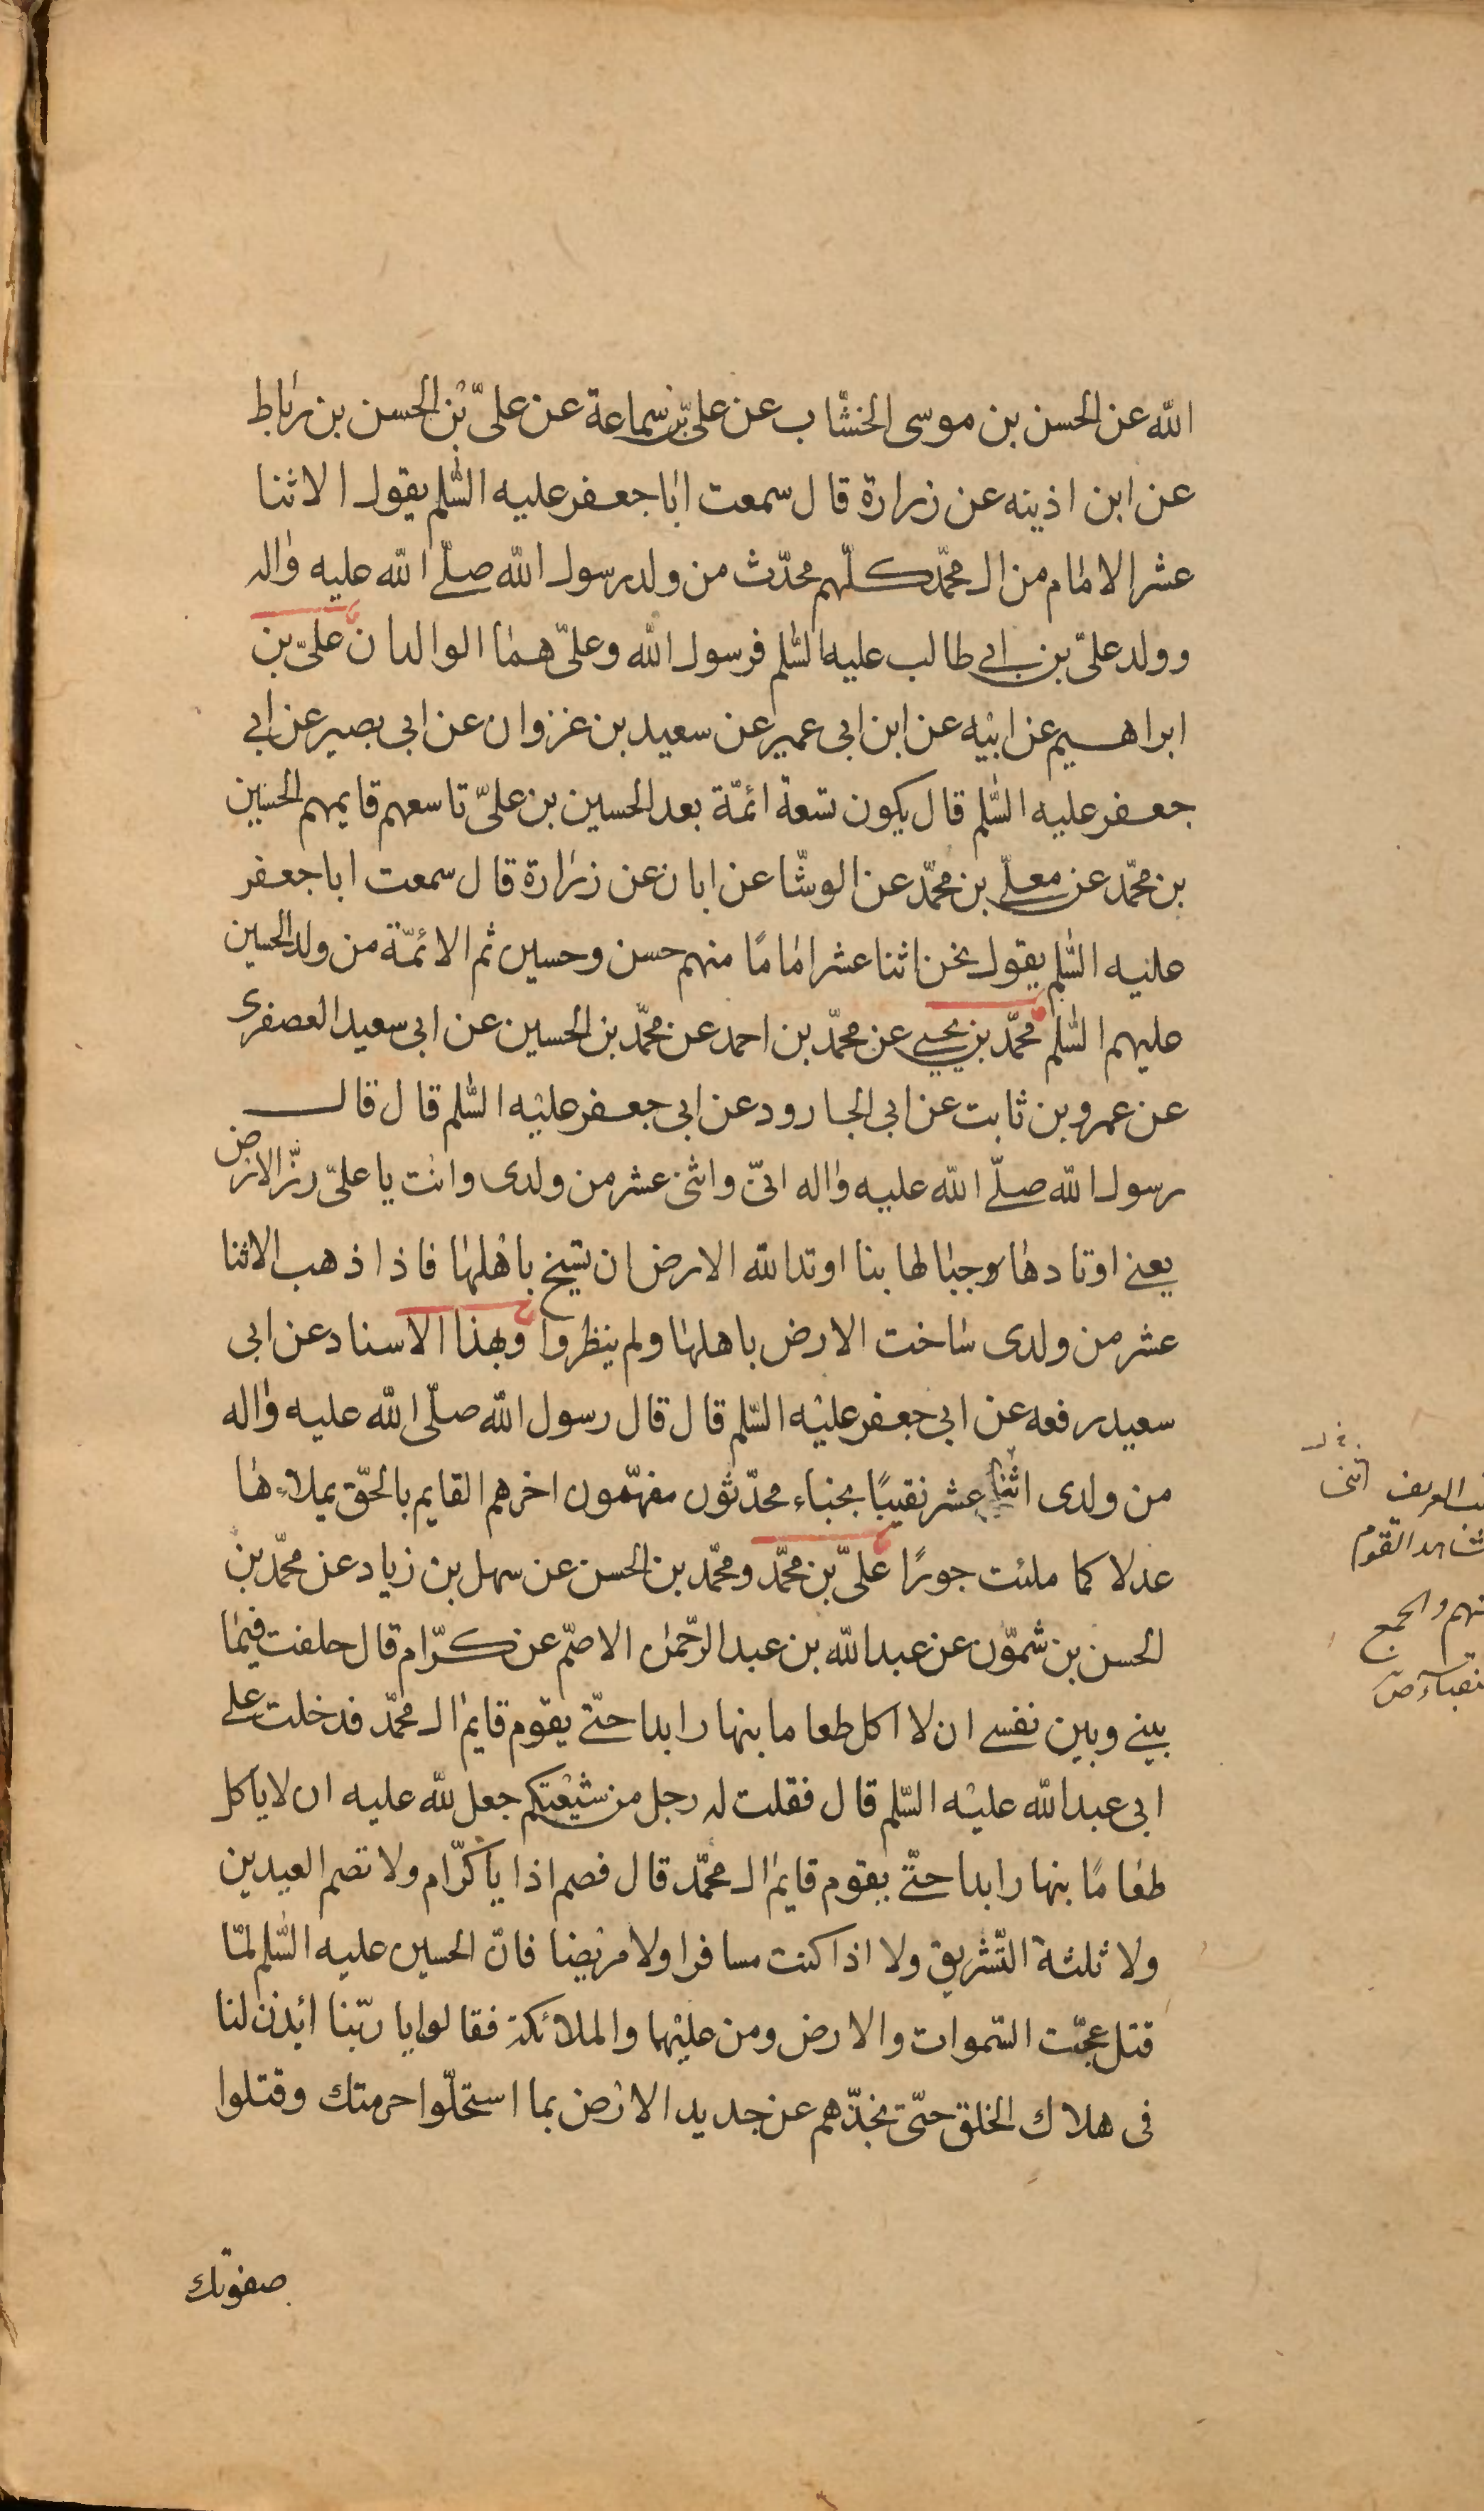 الله عن الحسن بن موسى الخشّاب عن علىّ بن سماعة عن علىّ بن الحسن بن رباط
عن ابن اذينه عن زرارة قال سمعت ابا جعفر عليه السّلم يقول الاثنا
عشر الامام من ال محمّد كلّهم محدّث من ولد رسول الله صلّى الله عليه واله
وولد علىّ بن ابى طالب عليه السّلم فرسول الله وعلىّ هما الوالدان علىّ بن
ابراهيم عن ابيه عن ابن ابى عمير عن سعيد بن غزوان عن ابى بصير عن ابى
جعفر عليه السّلم قال يكون تسعة ائمّة بعد الحسين بن علىّ تاسعهم قايمهم الحسين
بن محمّد عن معلّى بن محمّد عن الوشّا عن ابان عن زرارة قال سمعت ابا جعفر
عليه السّلم يقول نحن اثنا عشر امامًا منهم حسن وحسين ثم الائمّة من ولد الحسين
عليهم السّلم محمّد بن يحيى عن محمّد بن احمد عن محمّد بن الحسين عن ابى سعيد العصفرى
عن عمرو بن ثابت عن ابى الجارود عن ابى جعفر عليه السّلم قال قال
رسول الله صلّى الله عليه واله انّى واثنى عشر من ولدى وانت يا علىّ رزّ الارض
يعنى اوتادها وجبالها بنا اوتد الله الارض ان تسيخ باهلها فاذا ذهب الاثنا
عشر من ولدى ساخت الارض باهلها ولم ينظروا وبهذا الاسناد عن ابى
سعيد رفعه عن ابى جعفر عليه السّلم قال قال رسول الله صلّى الله عليه واله
من ولدى اثنا عشر نقيبًا نجباء محدّثون مفهّمون اخرهم القايم بالحّق يملاءها
عدلا كما ملئت جورًا علىّ بن محمّد ومحمّد بن الحسن عن سهل بن زياد عن محمّد بن
الحسن بن شمّون عن عبد الله بن عبد الرّحمن الاصّم عن كرّام قال حلفت فيما
بينى وبين نفسى ان لا اكل طعاما بنهار ابدا حتّى يقوم قايم ال محمّد فدخلت على
ابى عبد الله عليه السّلم قال فقلت له رجل من شيعتكم جعل لله عليه ان لا ياكل
طعامًا بنهار ابدا حتّى يقوم قايم ال محمّد قال فصم اذا يا كرّام ولا تصم العيدين
ولا ثلثة التّشريق ولا اذا كنت مسافرا ولا مريضا فانّ الحسين عليه السّلم لمّا
قتل عجّت السّموات والارض ومن عليهما والملائكة فقالوا يا ربّنا ائذن لنا
فى هلاك الخلق حتّى نجدّهم عن جديد الارض بما استحلّوا حرمتك وقتلوا
صفوتك
العريف
القوم
والجمع